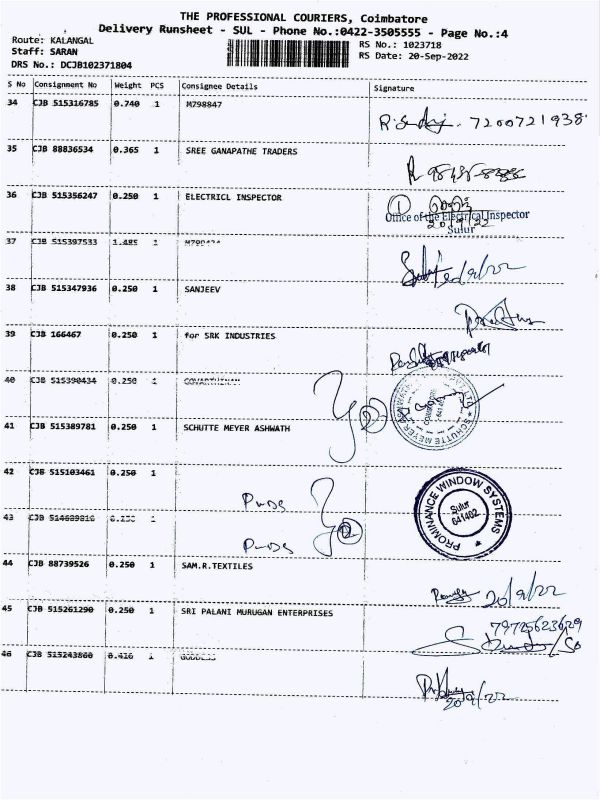 THE PROFESSIONAL COURIERS, Coimbatore
Delivery Runsheet - SUL - Phone No.:0422-3505555 - Page No.:4
Route: KALANGAL
RS No.: 1023718
Staff: SARAN
RS Date: 20-Sep-2022
DRS No.: DCJB102371804
S No Consignment No Weight PCS Consignee Details Signature
34 CJB 515316785 0.740 1 M798847
7200721938
35 CJB 88836534 0.365 1 SREE GANAPATHE TRADERS
36 CJB 515356247 0.250 1 ELECTRICL INSPECTOR
1
Office of the Electrical Inspector
20/9/22
Sulur
37 CJB 515397533 1.485 1
20/9/22
38 CJB 515347936 0.250 1 SANJEEV
39 CJB 166467 0.250 1 for SRK INDUSTRIES
40 CJB 515390434 0.250 1 GOVARTHINAN
SCHUTTE MEYER ASHWATH
41 CJB 515389781 0.250 1 SCHUTTE MEYER ASHWATH
42 CJB 515103461 0.250 1
PROMINANCE WINDOW SYSTEMS
Sulur
641402
43 CJB 1
44 CJB 88739526 0.250 1 SAM.R.TEXTILES
20/9/22
45 CJB 515261290 0.250 1 SRI PALANI MURUGAN ENTERPRISES
46 CJB 515243860 0.416 1 GODDESS
20/9/22